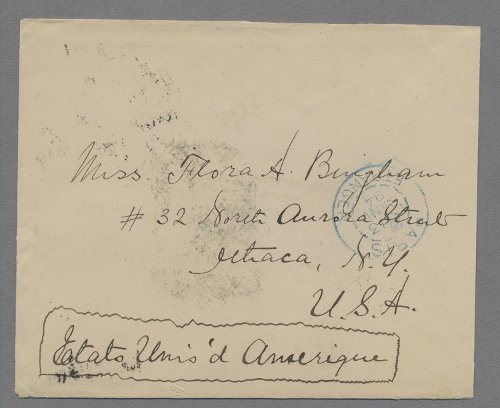 Miss. Flora A. Bingham
# 32 North Aurora Street
Ithaca, N.Y.
U.S.A.
Etats Unis'd Amerique